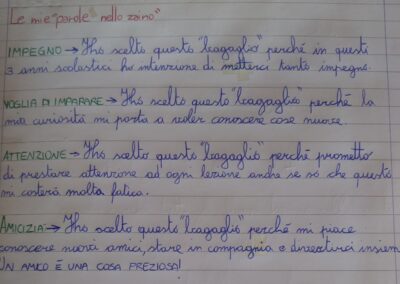 Le mie "parole" nello zaino"
IMPEGNO → Ho scelto questo "bagaglio" perché in questi
3 anni scolastici ho intenzione di metterci tanto impegno.
VOGLIA DI IMPARARE → Ho scelto questo "bagaglio" perché la
mia curiosità mi porta a voler conoscere cose nuove.
ATTENZIONE → Ho scelto questo "bagaglio" perché prometto
di prestare attenzione ad ogni lezione anche se so che questo
mi costerà molta fatica.
AMICIZIA → Ho scelto questo "bagaglio" perché mi piace
conoscere nuovi amici, stare in compagnia e divertirci insiem
UN AMICO É UNA COSA PREZIOSA!